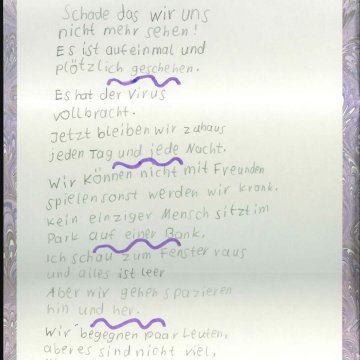 Schade das wir uns
nicht mehr sehen!
Es ist aufeinmal und
plötzlich geschehen.
Es hat der Virus
vollbracht.
Jetzt bleiben wir zuhaus
jeden Tag und jede Nacht.
Wir können nicht mit Freunden
spielen sonst werden wir krank.
kein einziger Mensch sitzt im
Park auf einer Bank.
Ich schau zum Fenster raus
und alles ist leer
Aber wir gehen spazieren
hin und her.
Wir begegnen paar Leuten,
aber es sind nicht viel.